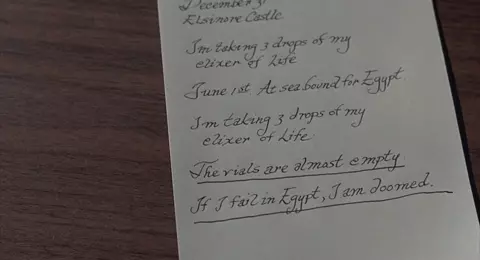 December 31
Elsinore Castle
Im taking 3 drops of my
elixer of Life
June 1st At sea bound for Egypt
I'm taking 3 drops of my
elixer of Life
The vials are almost empty
If I fail in Egypt, I am doomed.